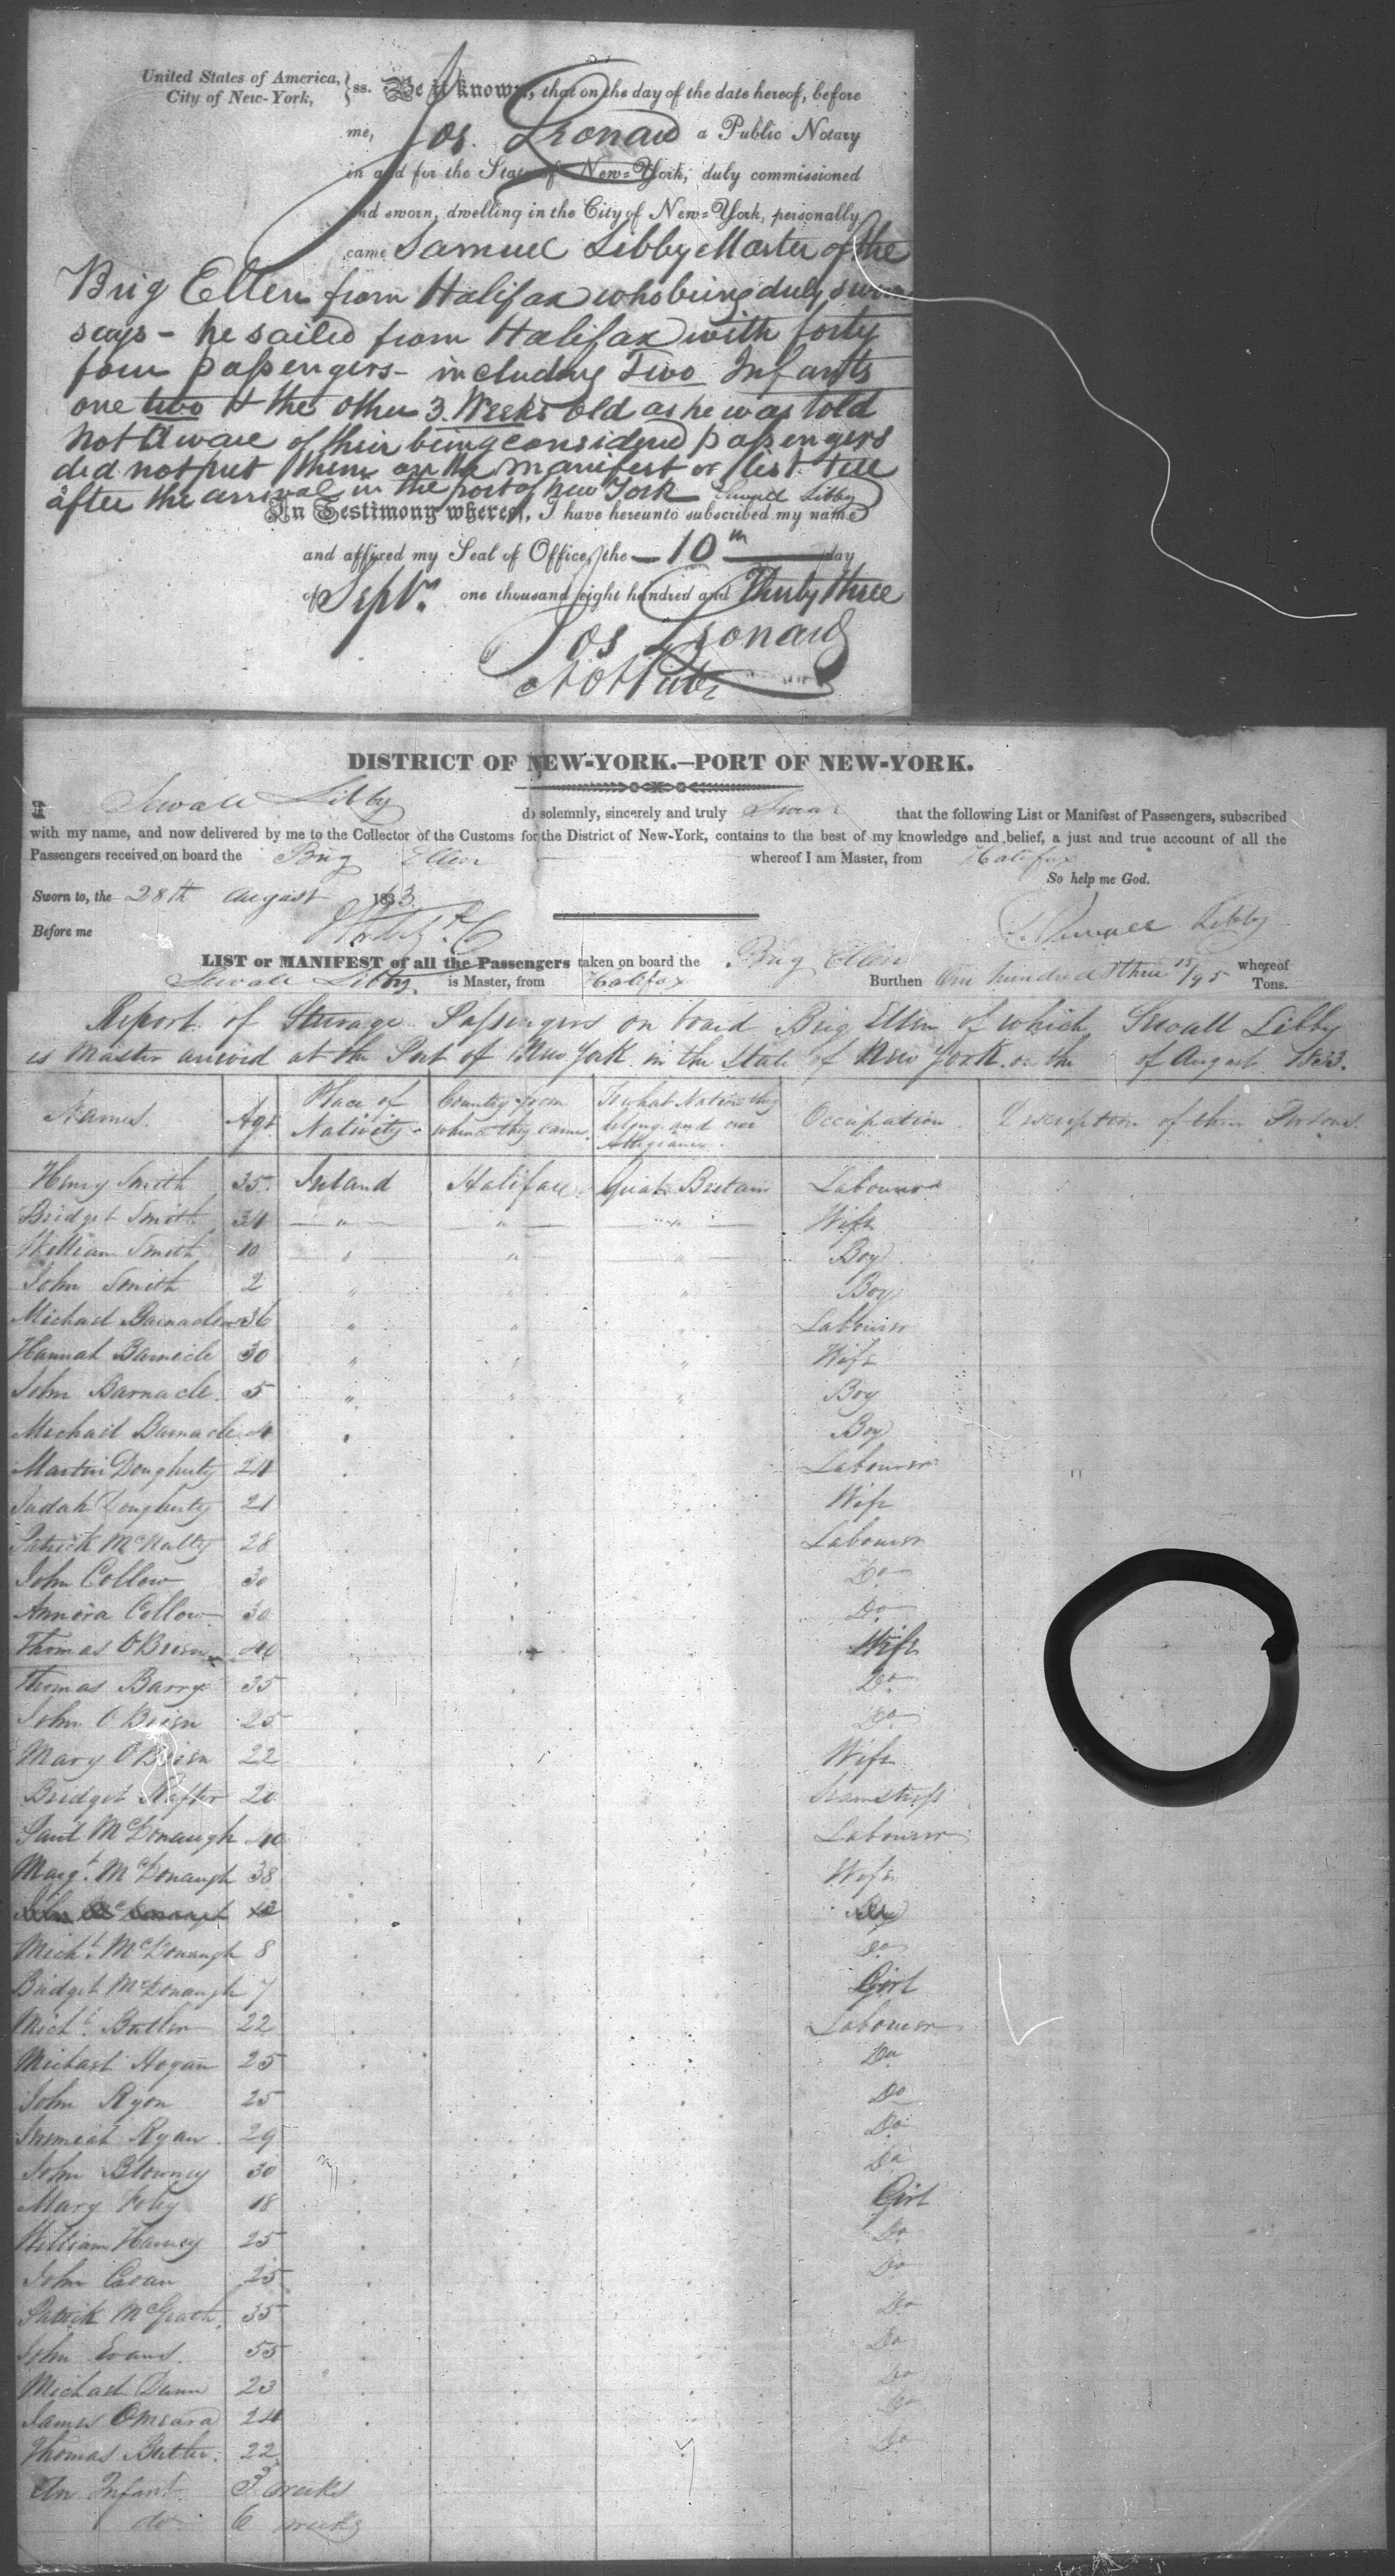 United States of America,
City of New-York, } ss. Be it known, that on the day of the date hereof, before
me, Jos. Leonard a Public Notary
in and for the State of New-York, duly commissioned
and sworn, dwelling in the City of New-York, personally
came Samuel Libby Master of the
Brig Ellen from Halifax who being duly sworn
says - he sailed from Halifax with forty
four passengers - including Two Infants
one two & the other 3 Weeks old as he was told
not aware of their being considered passengers
did not put them on the manifest or list till
after the arrival in the port of New York Sewall Libby
In Testimony whereof, I have hereunto subscribed my name
and affixed my Seal of Office, the 10th day
of Septr. one thousand eight hundred and Thirty three
Jos Leonard
Not Pub
DISTRICT OF NEW-YORK.—PORT OF NEW-YORK.
I Sewall Libby do solemnly, sincerely and truly Swear that the following List or Manifest of Passengers, subscribed
with my name, and now delivered by me to the Collector of the Customs for the District of New-York, contains to the best of my knowledge and belief, a just and true account of all the
Passengers received on board the Brig Ellen whereof I am Master, from Halifax
So help me God.
Sworn to, the 28th August 1833
Before me
Sewall Libby
LIST or MANIFEST of all the Passengers taken on board the Brig Ellen whereof
Sewall Libby is Master, from Halifax Burthen One hundred & three 15/95 Tons.
Report of Steerage Passengers on board Brig Ellen of which Sewall Libby
is Master arrived at the Port of New York in the State of New York on the of August 1833.
Names. Age Place of Nativity. Country from which they came. To what Nation they belong and owe Allegiance. Occupation Description of their Persons.
Henry Smith 35 Ireland Halifax Great Britain Labourer
Bridget Smith 34 " " " Wife
William Smith 10 " " " Boy
John Smith 2 " " " Boy
Michael Barnacle 36 " " " Labourer
Hannah Barnacle 30 " " " Wife
John Barnacle 5 " " " Boy
Michael Barnacle 4 Boy
Martin Dougherty 24 Labourer
Judah Dougherty 21 Wife
Patrick McNulty 28 Labourer
John Collow 30 Do
Annora Collow 30 Do
Thomas O'Brien 40 Wife
Thomas Barry 35 Do
John O'Brien 25 Do
Mary O'Brien 22 Wife
Bridget 20 Seamstress
McDonaugh 40 Labourer
Margt. McDonaugh 38 Wife
John McDonaugh
Michl. McDonaugh 8 Do
Bridget McDonaugh 7 Girl
Michl. Butler 22 Labourer
Michael Hogan 25 Do
John Ryon 25 Do
Jeremiah Ryan 29 Do
John Blowney 30 Do
Mary Foley 18 Girl
William Harney 25 Do
John 25 Do
Patrick McGrath 35 Do
John Evans. 55 Do
Michael Dunn 23 Do
James Omeara 24 Do
Thomas Butler 22 Do
An Infant 3 weeks
do 6 weeks